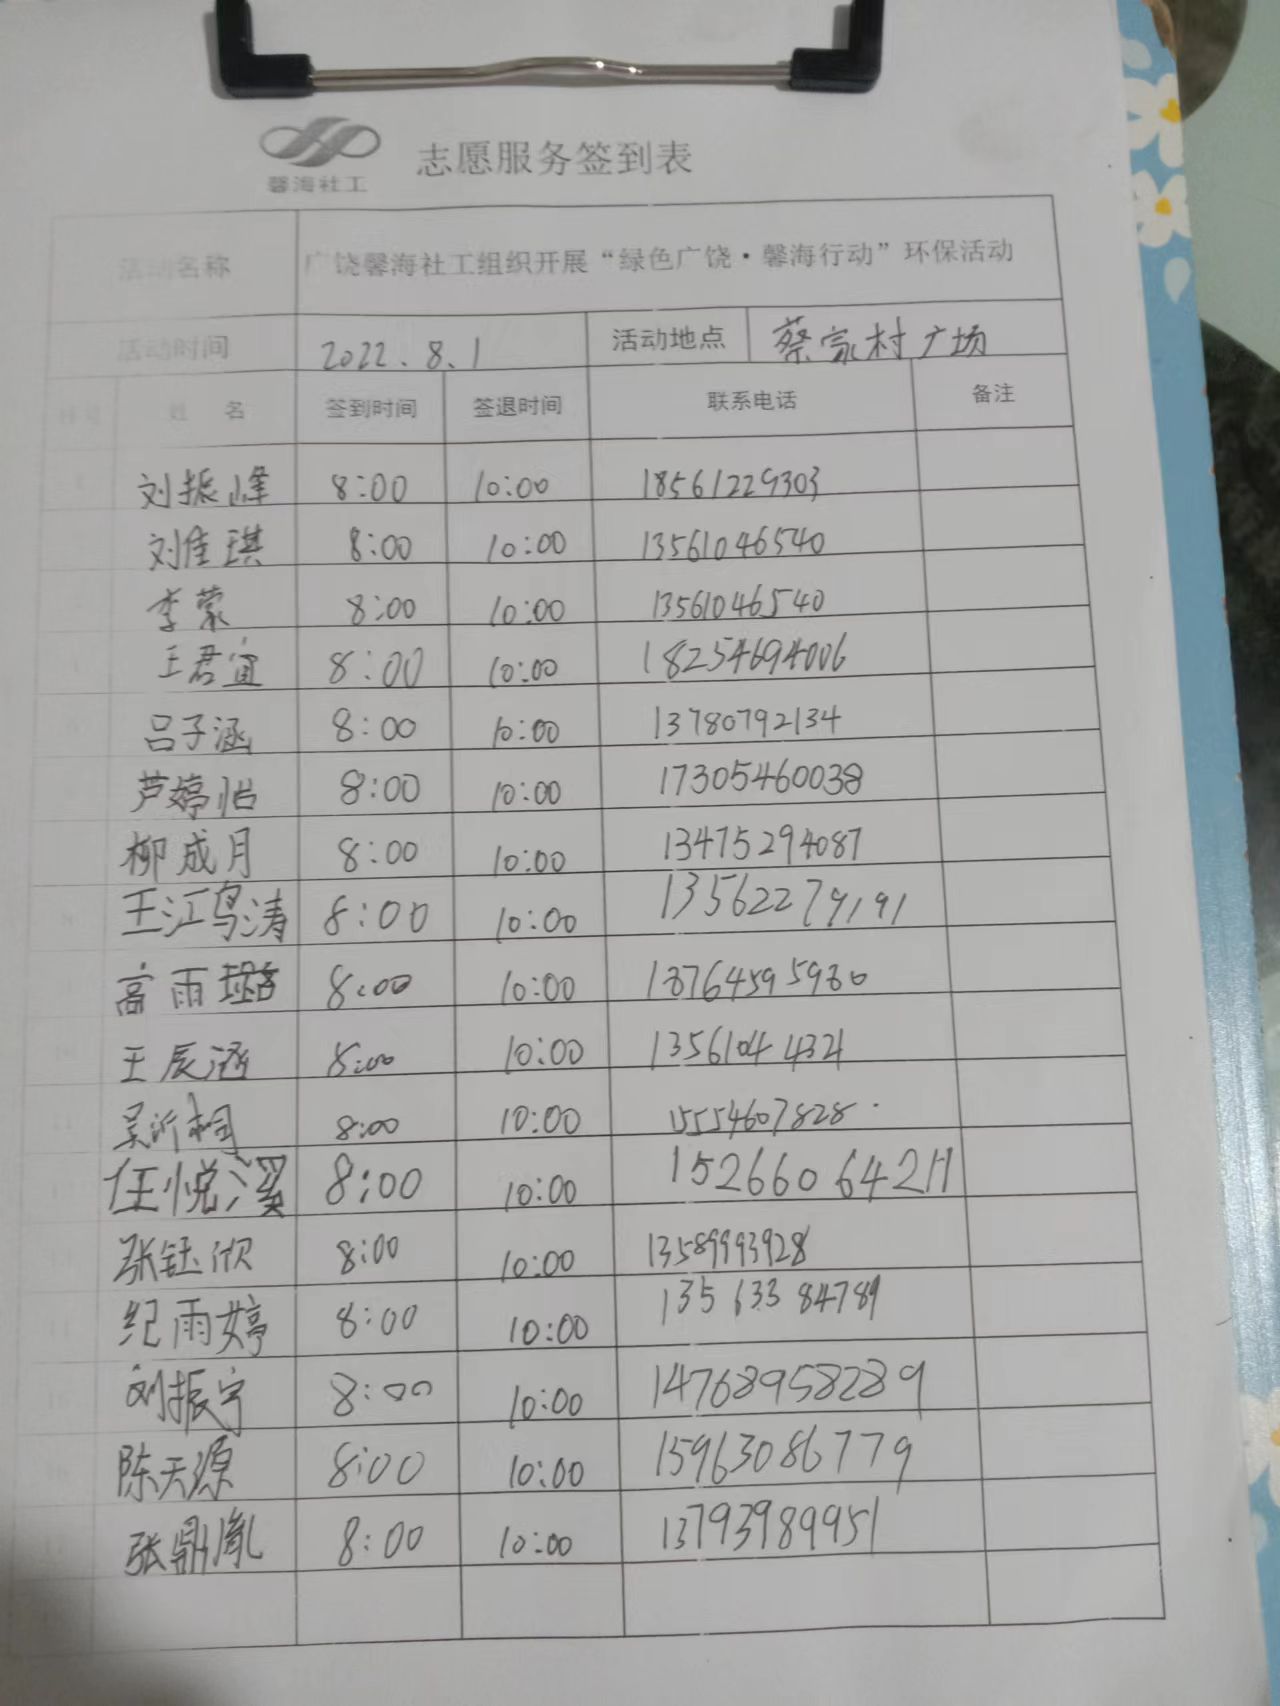 馨海社工
志愿服务签到表
活动名称 广饶馨海社工组织开展“绿色广饶·馨海行动”环保活动
活动时间 2022.8.1 活动地点 蔡家村广场
序号 姓名 签到时间 签退时间 联系电话 备注
刘振峰 8:00 10:00 18561229303
刘佳琪 8:00 10:00 13561046540
李蒙 8:00 10:00 13561046540
王君宜 8:00 10:00 18254694006
吕子涵 8:00 10:00 13780792134
芦婷怡 8:00 10:00 17305460038
柳成月 8:00 10:00 13475294087
王江鸟涛 8:00 10:00 13562279191
高雨璐 8:00 10:00 13764595930
王辰涵 8:00 10:00 13561044321
吴沂桐 8:00 10:00 15554607828
任悦溪 8:00 10:00 15266064211
张钰欣 8:00 10:00 13589993928
纪雨婷 8:00 10:00 13563384789
刘振宇 8:00 10:00 14768958289
陈天源 8:00 10:00 15963086779
张鼎胤 8:00 10:00 13793989951